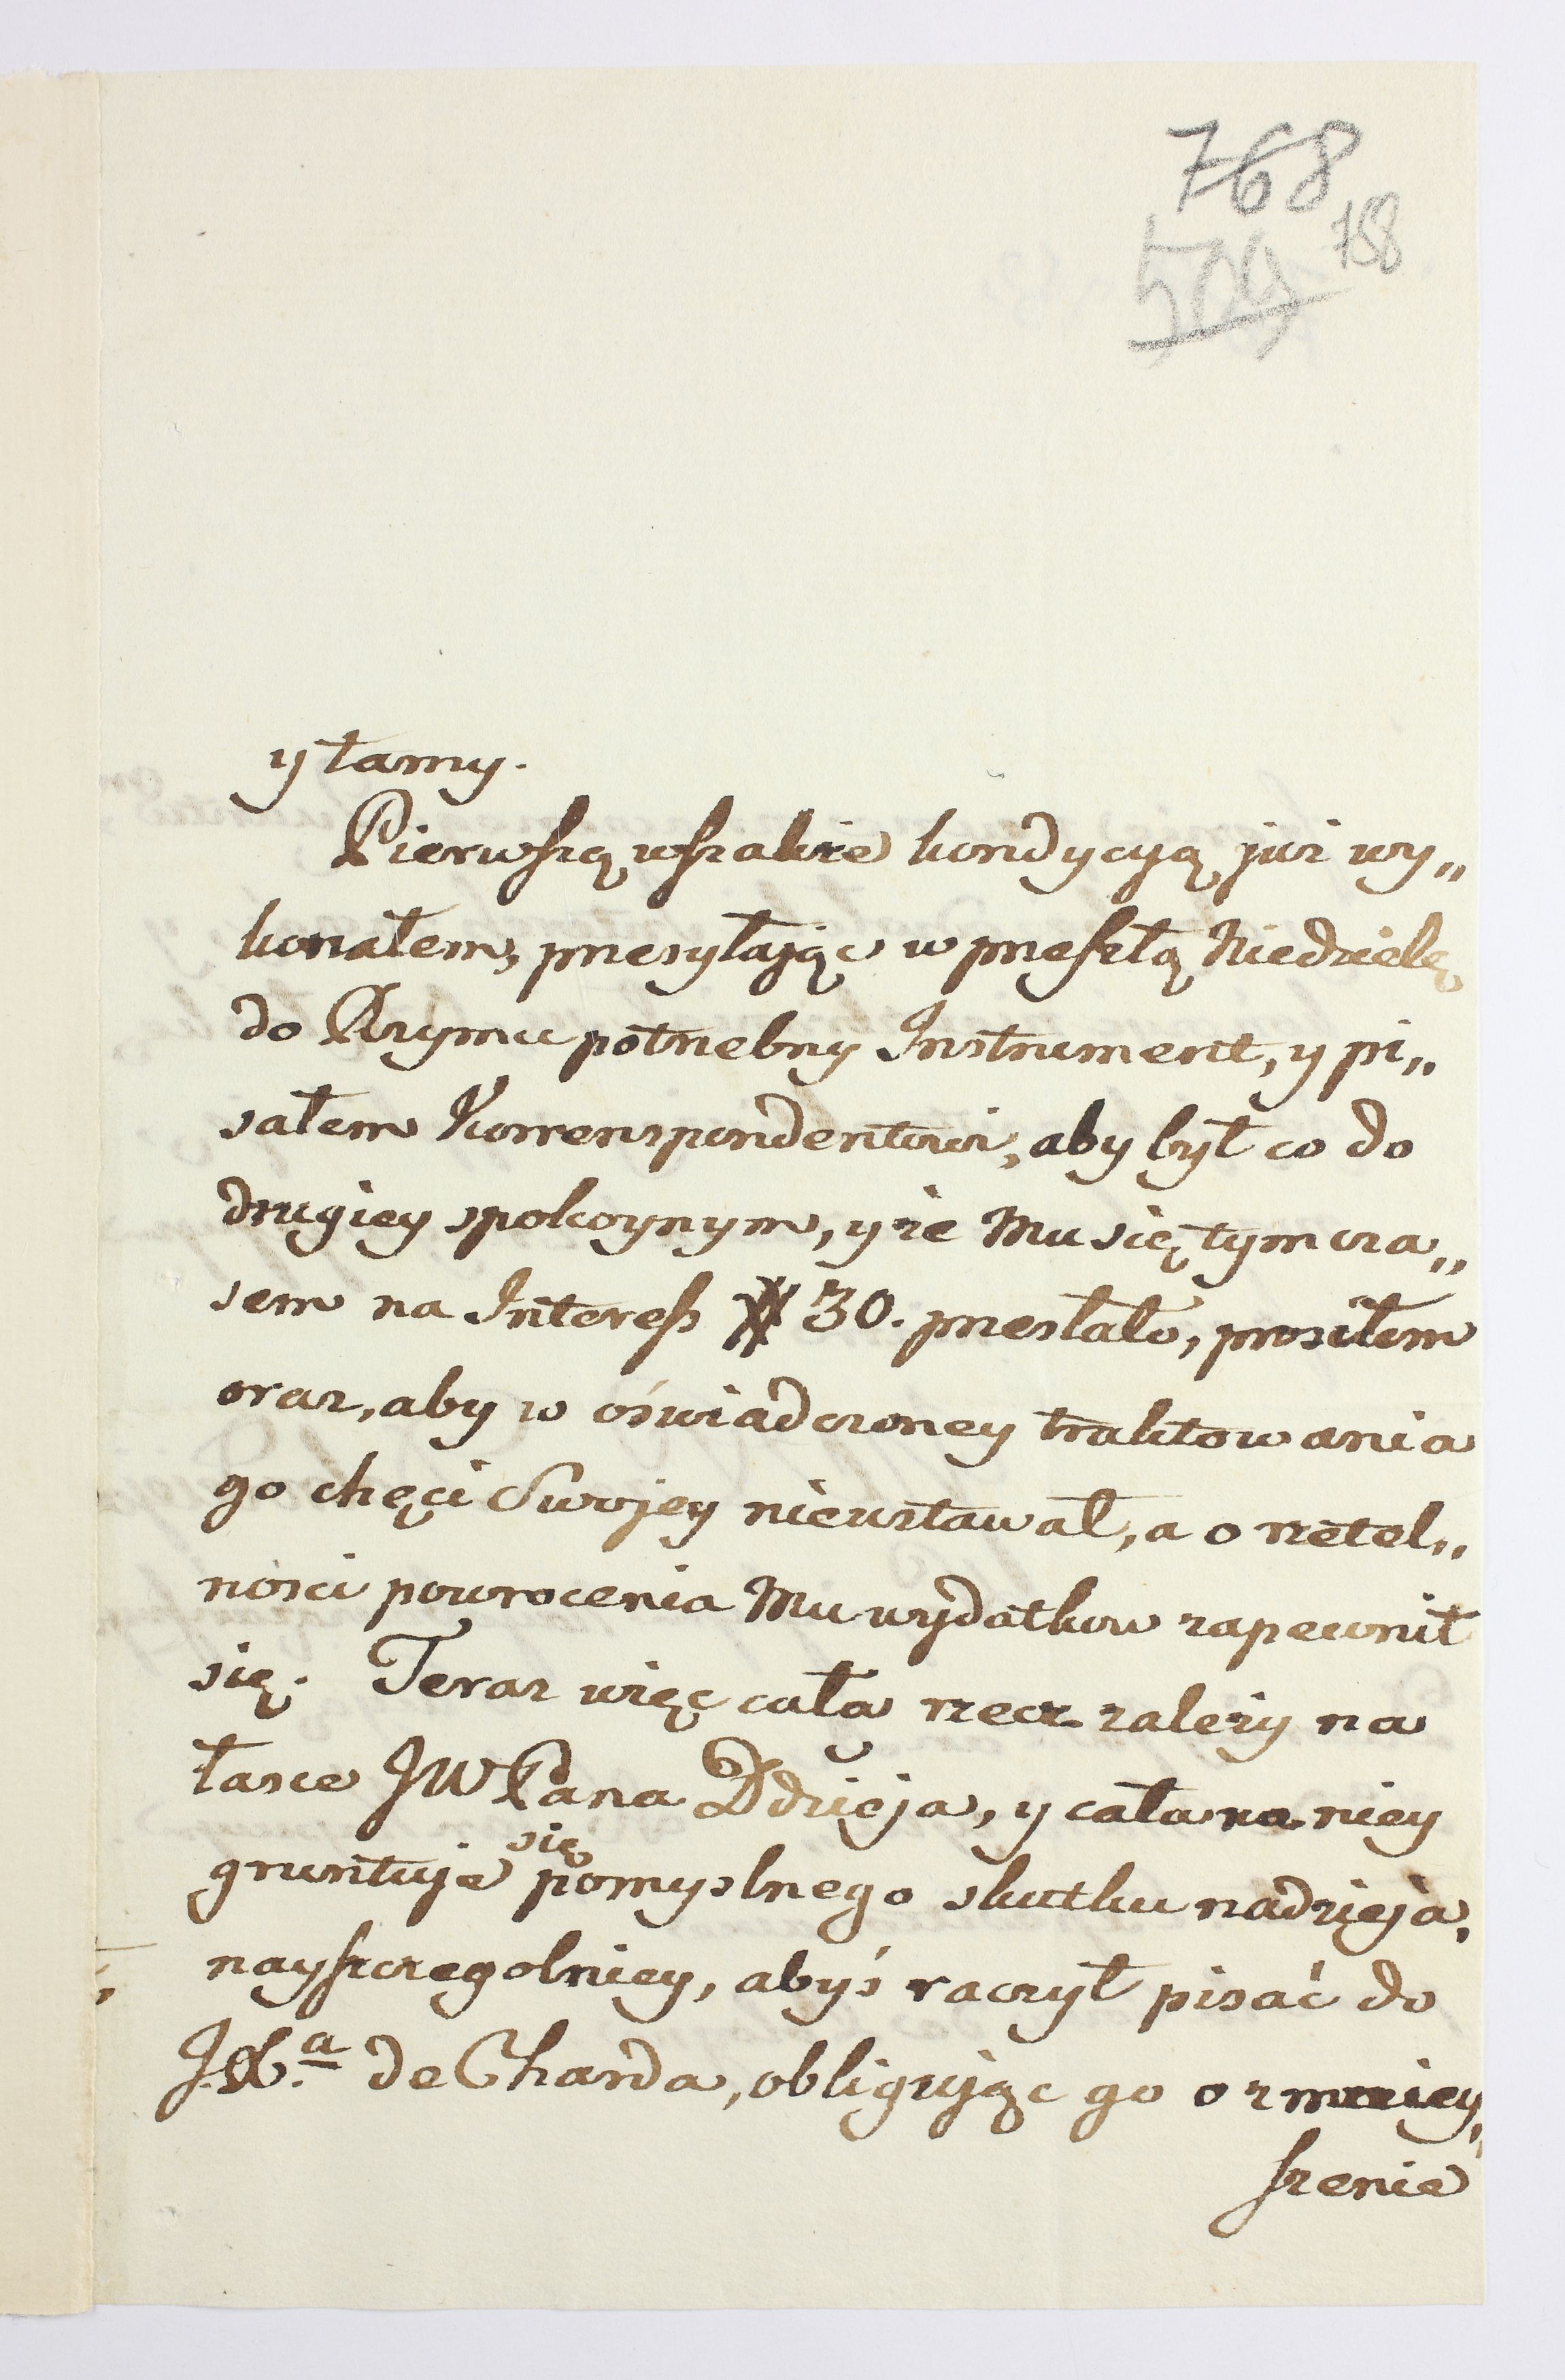 768
758
509
y tamy.
Pierwszą wszakże kondycyą już wy„
konałem, przesyłając w przeszłą Niedzielę
do Rzymu potrzebny Instrument, y pi„
sałem Korrenspondentowi, aby był co do
drugiey spokoynym, y że Mu się tym cza„
sem na Interess # 30. przesłało, prosiłem
oraz, aby w oświadczoney traktowania
go chęci Swojey nieustawał, a o rzetel„
ności powrocenia Mu wydatkow zapewnił
się. Teraz więc cała rzecz zależy na
łasce JW Pana Ddzieja, y cała na niey
gruntuje się pomyslnego skutku nadzieja,
nayszczegolniey, abyś raczył pisać do
J.X.a de Charda, obligując go o zmniey„
szenie